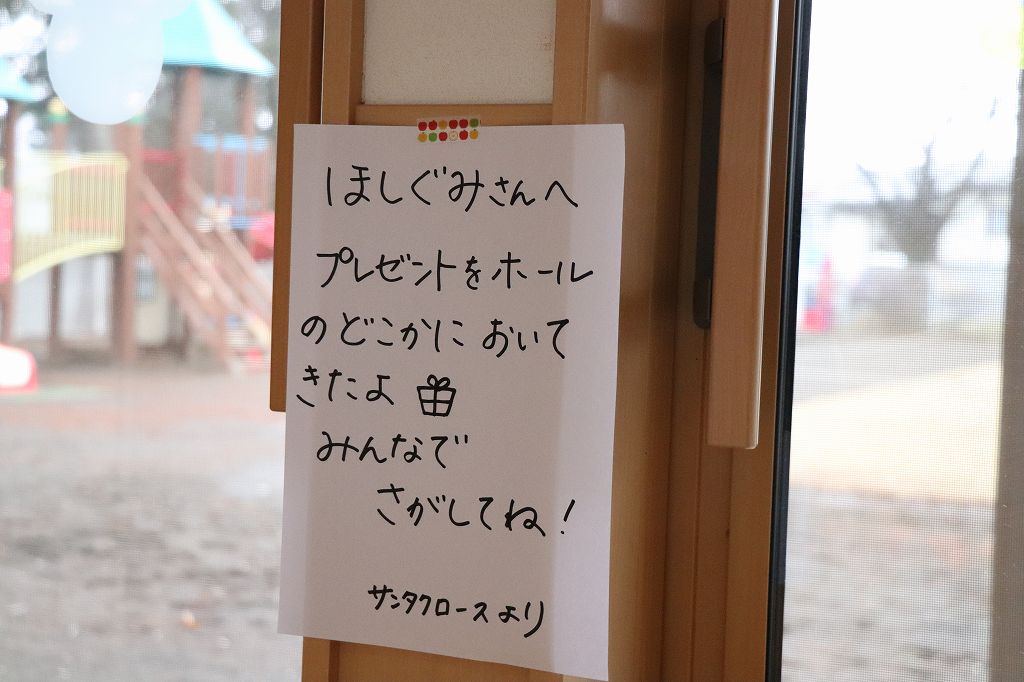 ほしぐみさんへ
プレゼントをホール
のどこかに おいて
きたよ
みんなで
さがしてね！
サンタクロースより